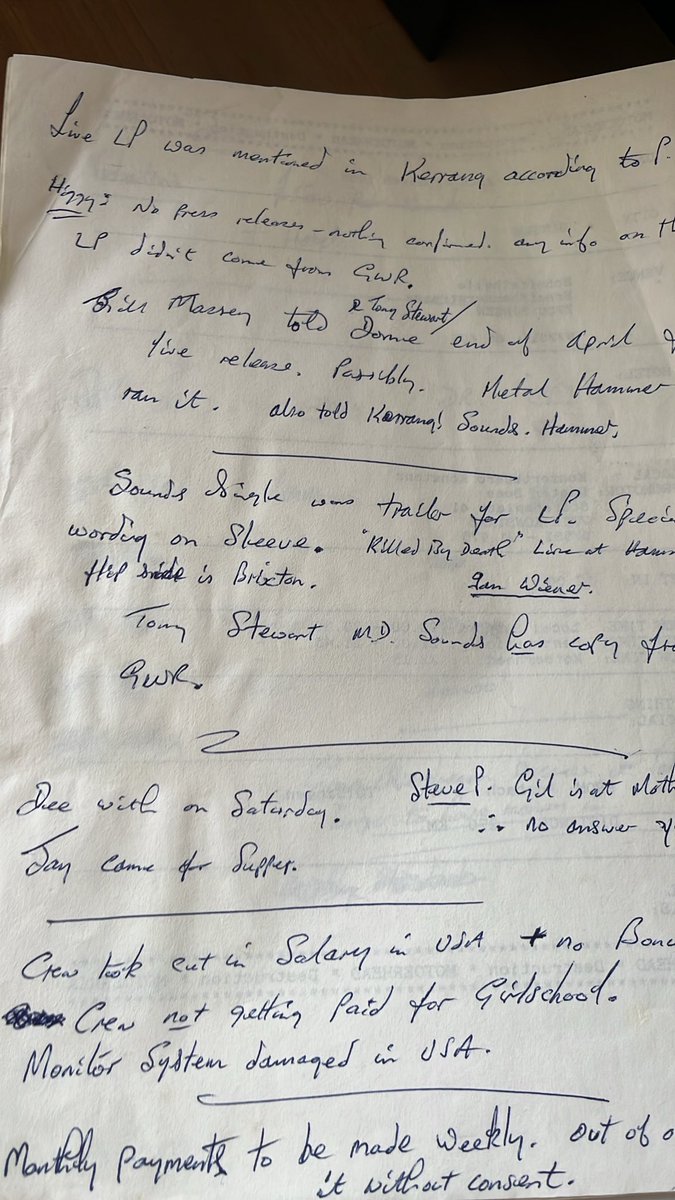 Live LP was mentioned in Kerrang according to P.
Higgy: No Press releases - nothing confirmed. any info on
LP didn't come from GWR.
& Tony Stewart/
Massey told Dome end of April
live release. Possibly. Metal Hammer
ran it. also told Kerrang! Sounds. Hammer,
Sounds Single was trailer for LP. Specia
wording on Sleeve. "Killed By Death" Live at Hamm
flip side is Brixton. Ian Wiener.
Tony Stewart M.D. Sounds has copy fro
GWR.
Dee with on Saturday. Steve P. Gil is at Moth
∴ no answer
Jay come for Supper.
Crew took cut in Salary in USA + no Bonu
Crew not getting Paid for Girlschool.
Monitor System damaged in USA.
Monthly payments to be made weekly. Out of o
it without consent.